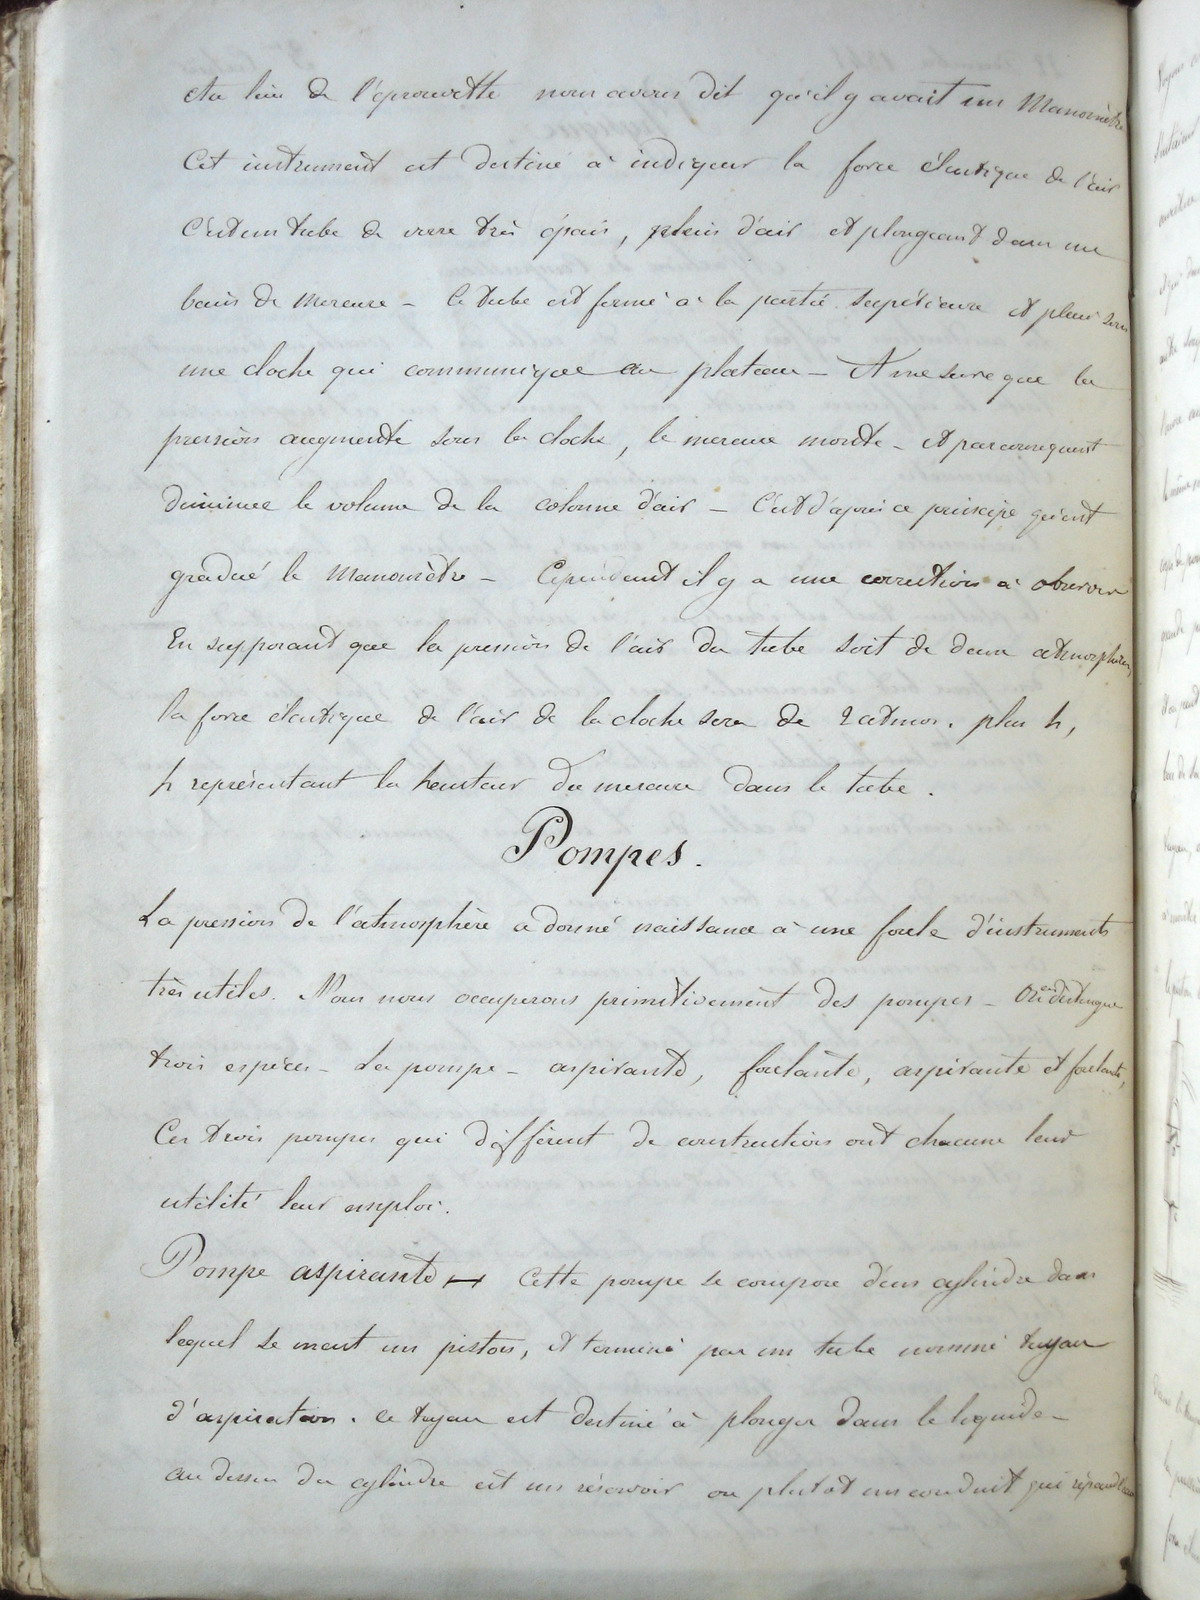 Au lieu de l'éprouvette nous avons dit qu'il y avait un Manomètre
Cet instrument est destiné à indiquer la force élastique de l'air
C'est un tube de verre très épais, plein d'air et plongeant dans un
bain de mercure – le tube est fermé à la partie supérieure et placé sous
une cloche qui communique au plateau – A mesure que la
pression augmente sous la cloche, le mercure monte – et par conséquent
diminue le volume de la colonne d'air – C'est d'après ce principe qu'est
gradué le Manomètre – Cependant il y a une correction à observer
En supposant que la pression de l'air du tube soit de deux atmosphères,
la force élastique de l'air de la cloche sera de 2 atmos. plus h,
h représentant la hauteur du mercure dans le tube.
Pompes.
La pression de l'atmosphère a donné naissance à une foule d'instruments
très utiles. Nous nous occuperons primitivement des pompes – On en distingue
trois espèces – La pompe – aspirante, foulante, aspirante et foulante,
Ces trois pompes qui diffèrent de construction ont chacune leur
utilité leur emploi.
Pompe aspirante – Cette pompe se compose d'un cylindre dans
lequel se meut un piston, et terminé par un tube nommé tuyau
d'aspiration. ce tuyau est destiné à plonger dans le liquide –
au dessus du cylindre est un réservoir ou plutôt un conduit qui répand